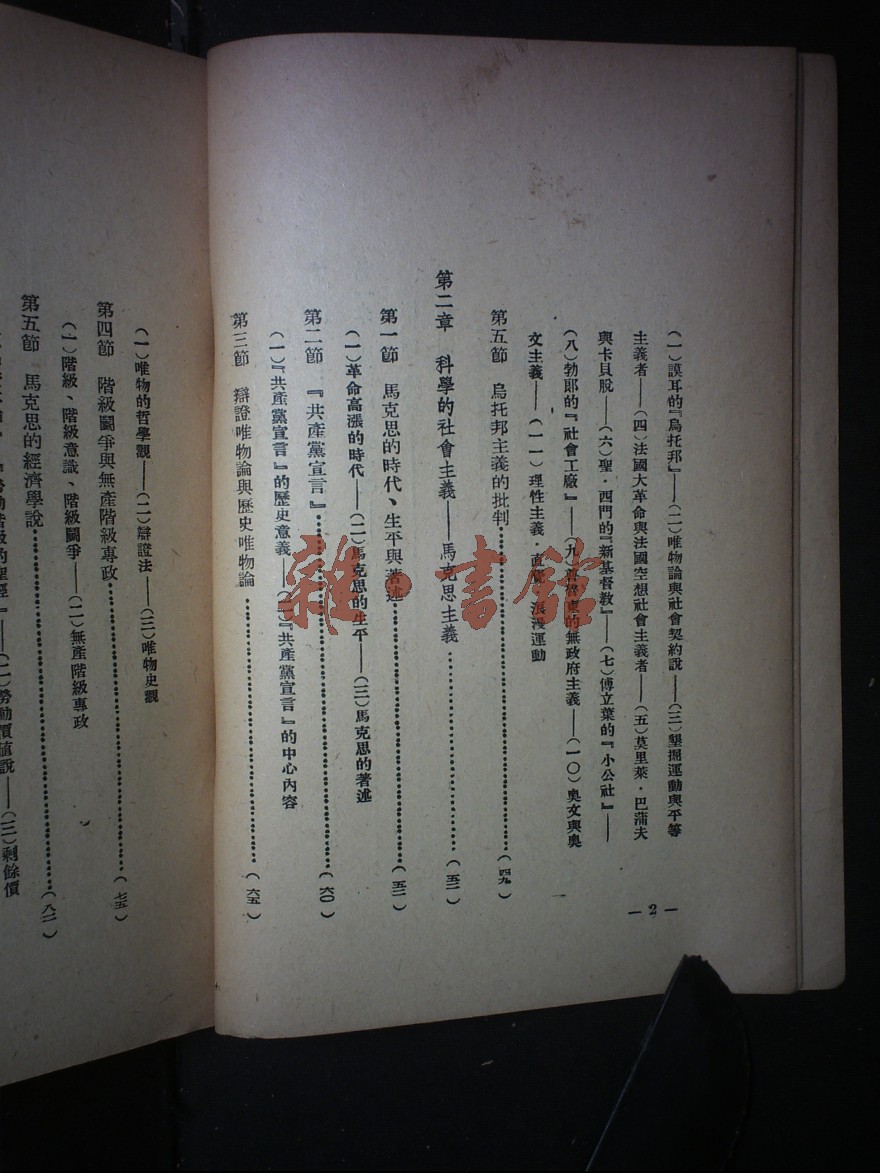 (一)謨耳的『烏托邦』——(二)唯物論與社會契約說——(三)墾掘運動與平等
主義者——(四)法國大革命與法國空想社會主義者——(五)莫里萊·巴蒲夫
與卡貝脫——(六)聖·西門的『新基督教』——(七)傅立葉的『小公社』——
(八)勃郎的『社會工廠』——(九)普魯東的無政府主義——(一〇)奧文與奧
文主義——(一一)理性主義·直覺·浪漫運動
第五節 烏托邦主義的批判……(四九)
第二章 科學的社會主義——馬克思主義……(五二)
第一節 馬克思的時代、生平與著述……(五二)
(一)革命高漲的時代——(二)馬克思的生平——(三)馬克思的著述
第二節 『共產黨宣言』……(六〇)
(一)『共產黨宣言』的歷史意義——(二)『共產黨宣言』的中心內容
第三節 辯證唯物論與歷史唯物論……(六五)
— 2 —
(一)唯物的哲學觀——(二)辯證法——(三)唯物史觀
第四節 階級鬬爭與無產階級專政……(七五)
(一)階級、階級意識、階級鬬爭——(二)無產階級專政
第五節 馬克思的經濟學說……(八二)
階級的聖經』——(二)勞動價值說——(三)剩餘價
雜·書館